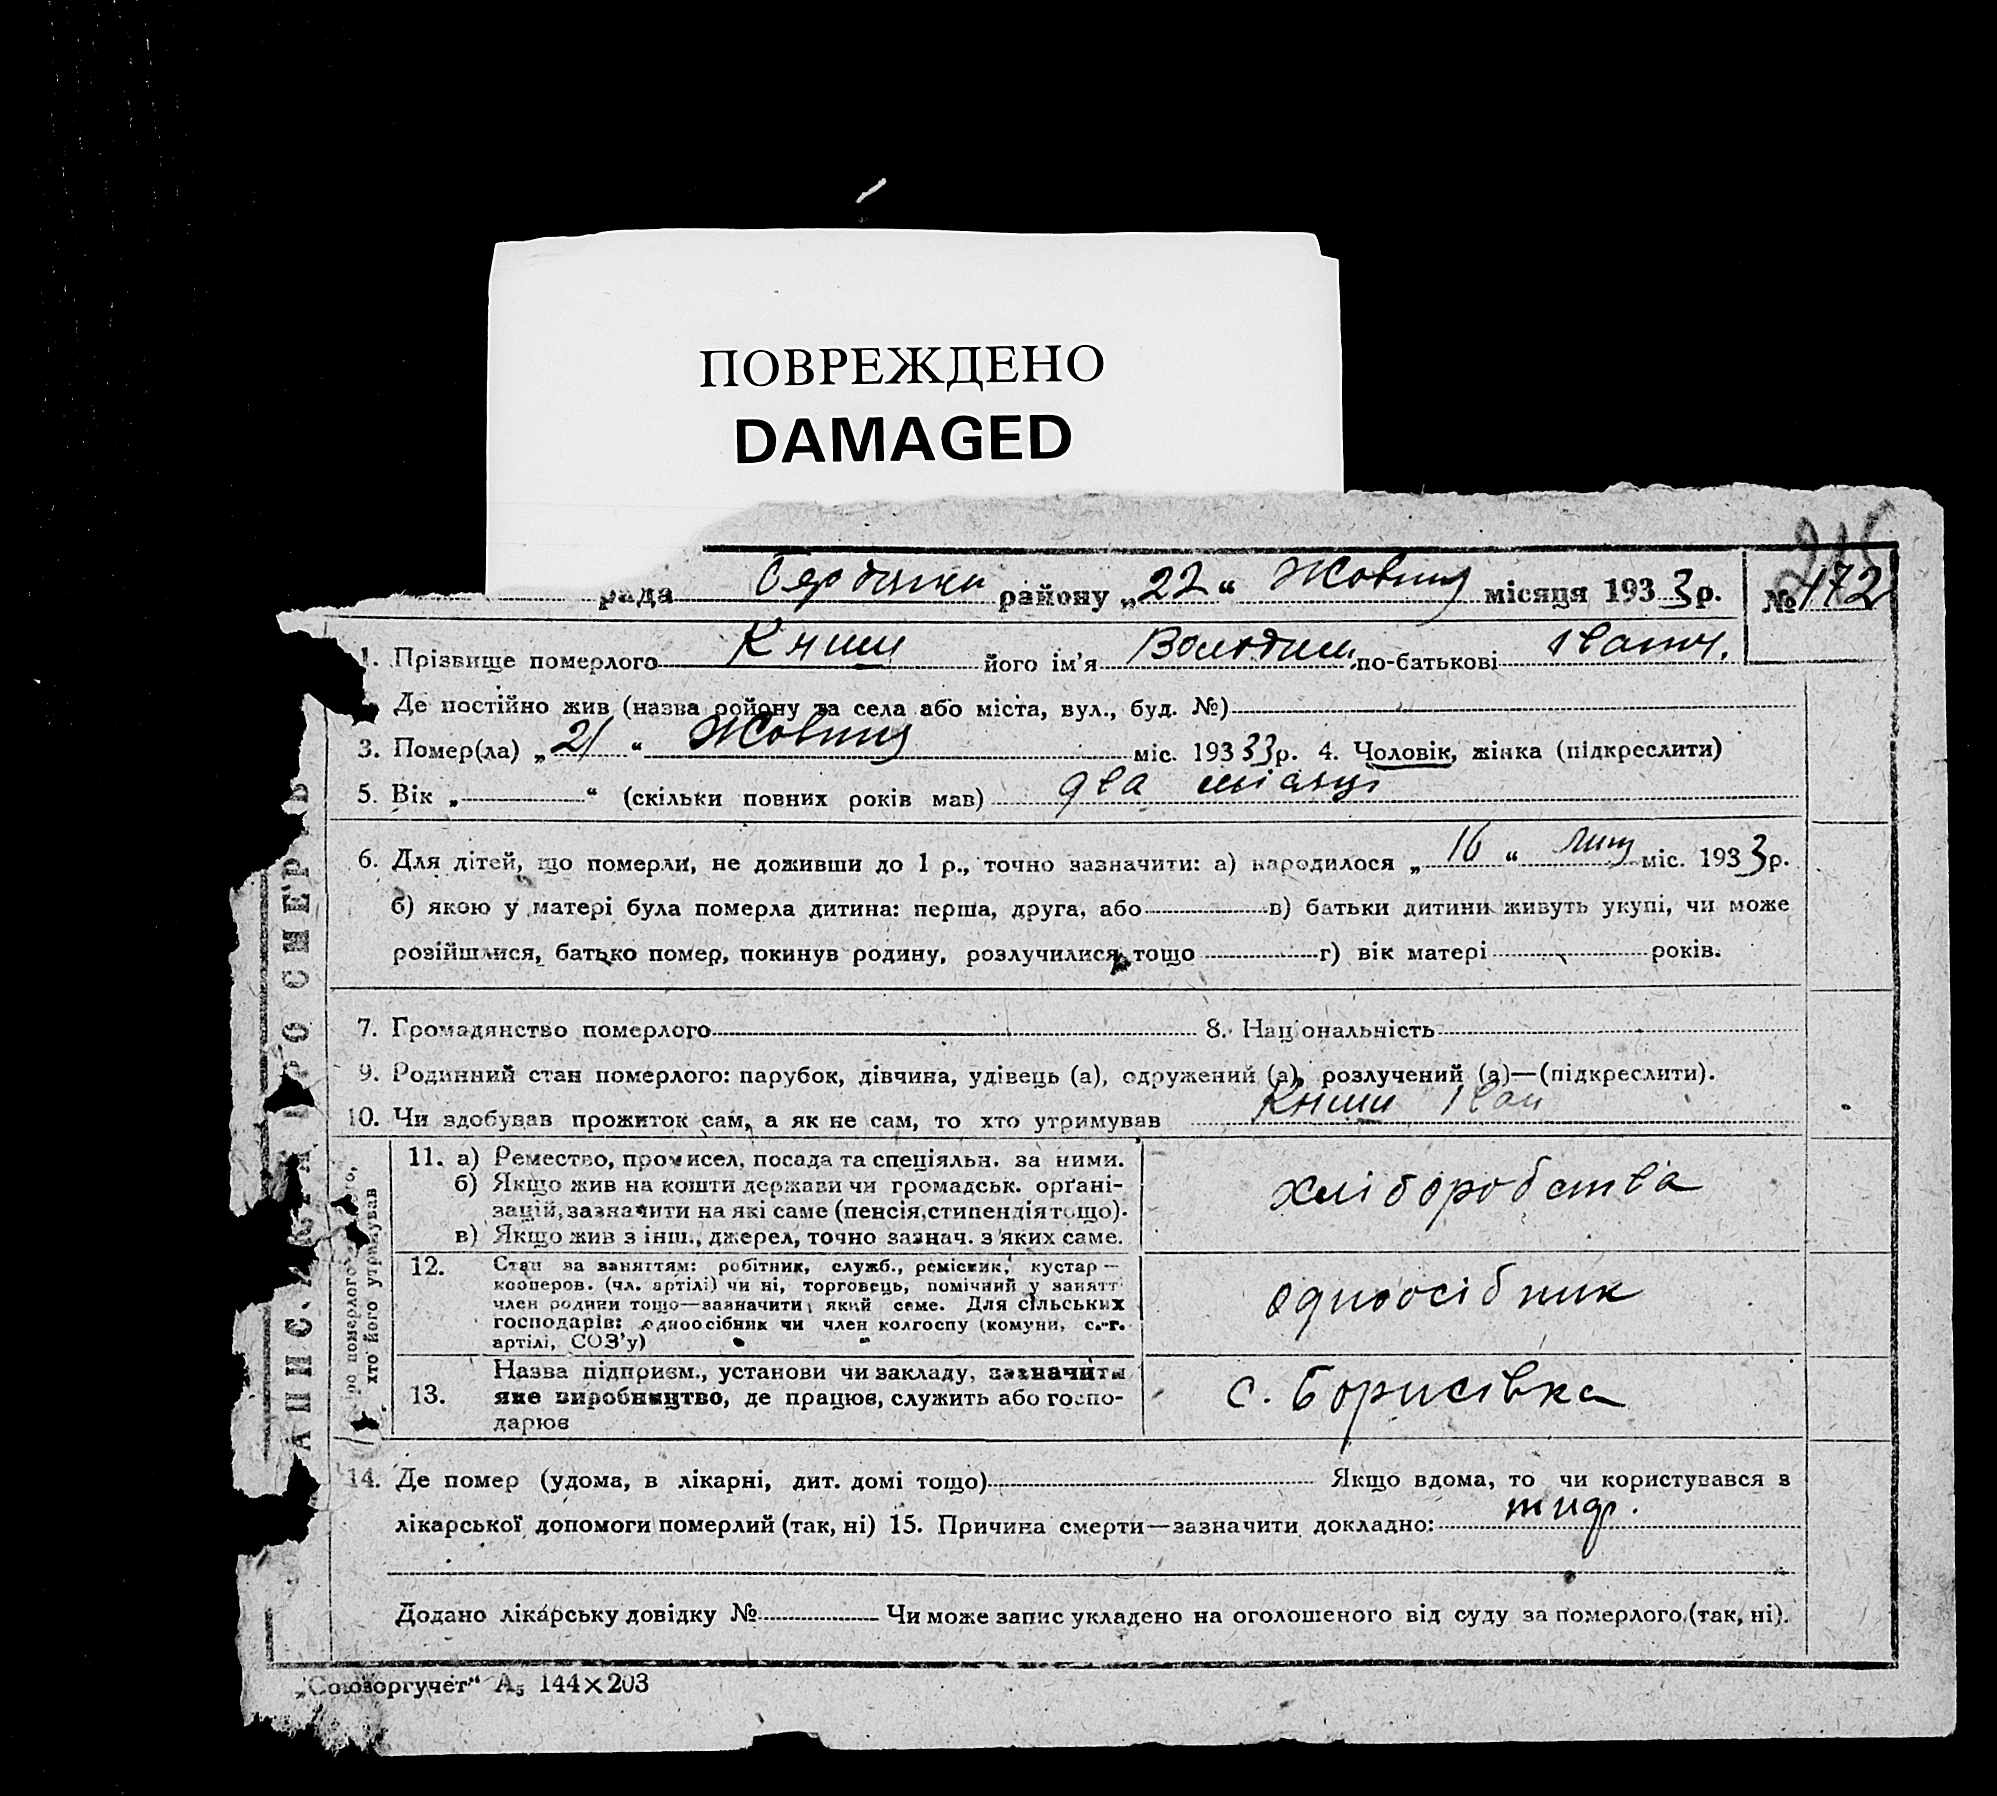 ПОВРЕЖДЕНО
DAMAGED
216
рада районy „22“ Жовтня місяця 1933 р. № 172
1. Прізвище померлого Книш його ім'я Володим. по-батькові Іванч.
Де постійно жив (назва ройону та села або міста, вул., буд. №)
3. Помер(ла) „21“ Жовтня міс. 193 33 р. 4. Чоловік, жінка (підкреслити)
5. Вік „ “ (скільки повних років мав) два місяці
6. Для дітей, що померли, не доживши до 1 р., точно зазначити: а) народилося „16“ Лип міс. 1933 р.
б) якою у матері була померла дитина: перша, друга, або в) батьки дитини живуть укупі, чи може
розійшлися, батько помер, покинув родину, розлучилися, тощо г) вік матері років.
7. Громадянство померлого 8. Національність
9. Родинний стан померлого: парубок, дівчина, удівець (а), одружений (а), розлучений (а)—(підкреслити).
10. Чи здобував прожиток сам, а як не сам, то хто утримував Книш Іван
11. а) Ремество, промисел, посада та спеціяльн. за ними.
б) Якщо жив на кошти держави чи громадськ. орґані-
зацій, зазначити на які саме (пенсія, стипендія тощо).
в) Якщо жив з інш., джерел, точно зазнач. з яких саме.
хліборобства
12. Стан за заняттям: робітник, служб., реміеник, кустар —
кооперов. (чл. артілі) чи ні, торговець, помічний у занятт
член родини тощо—зазначити який саме. Для сільських
господарів: одноосібник чи член колгоспу (комуни, с.-г.
артілі, СОЗ'у)
одноосібник
13. Назва підприєм., установи чи закладу, зазначити
яке виробництво, де працює, служить або госпо-
дарює
с. Борисівка
14. Де помер (удома, в лікарні, дит. домі тощо) Якщо вдома, то чи користувався в
лікарської допомоги померлий (так, ні) 15. Причина смерти—зазначити докладно:
Додано лікарську довідку № Чи може запис укладено на оголошеного від суду за померлого (так, ні).
„Союзоргучет“ А5 144×203
АПИС АКТА ПРО СМЕРТЬ
ро померлого
хто його утримував